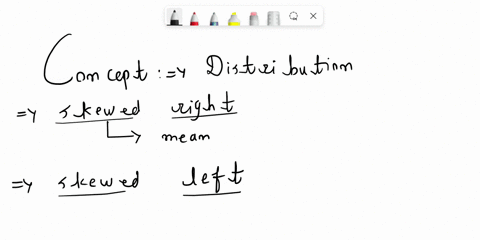 Concept :=> Distribution
=> skewed right
mean
=> skewed left